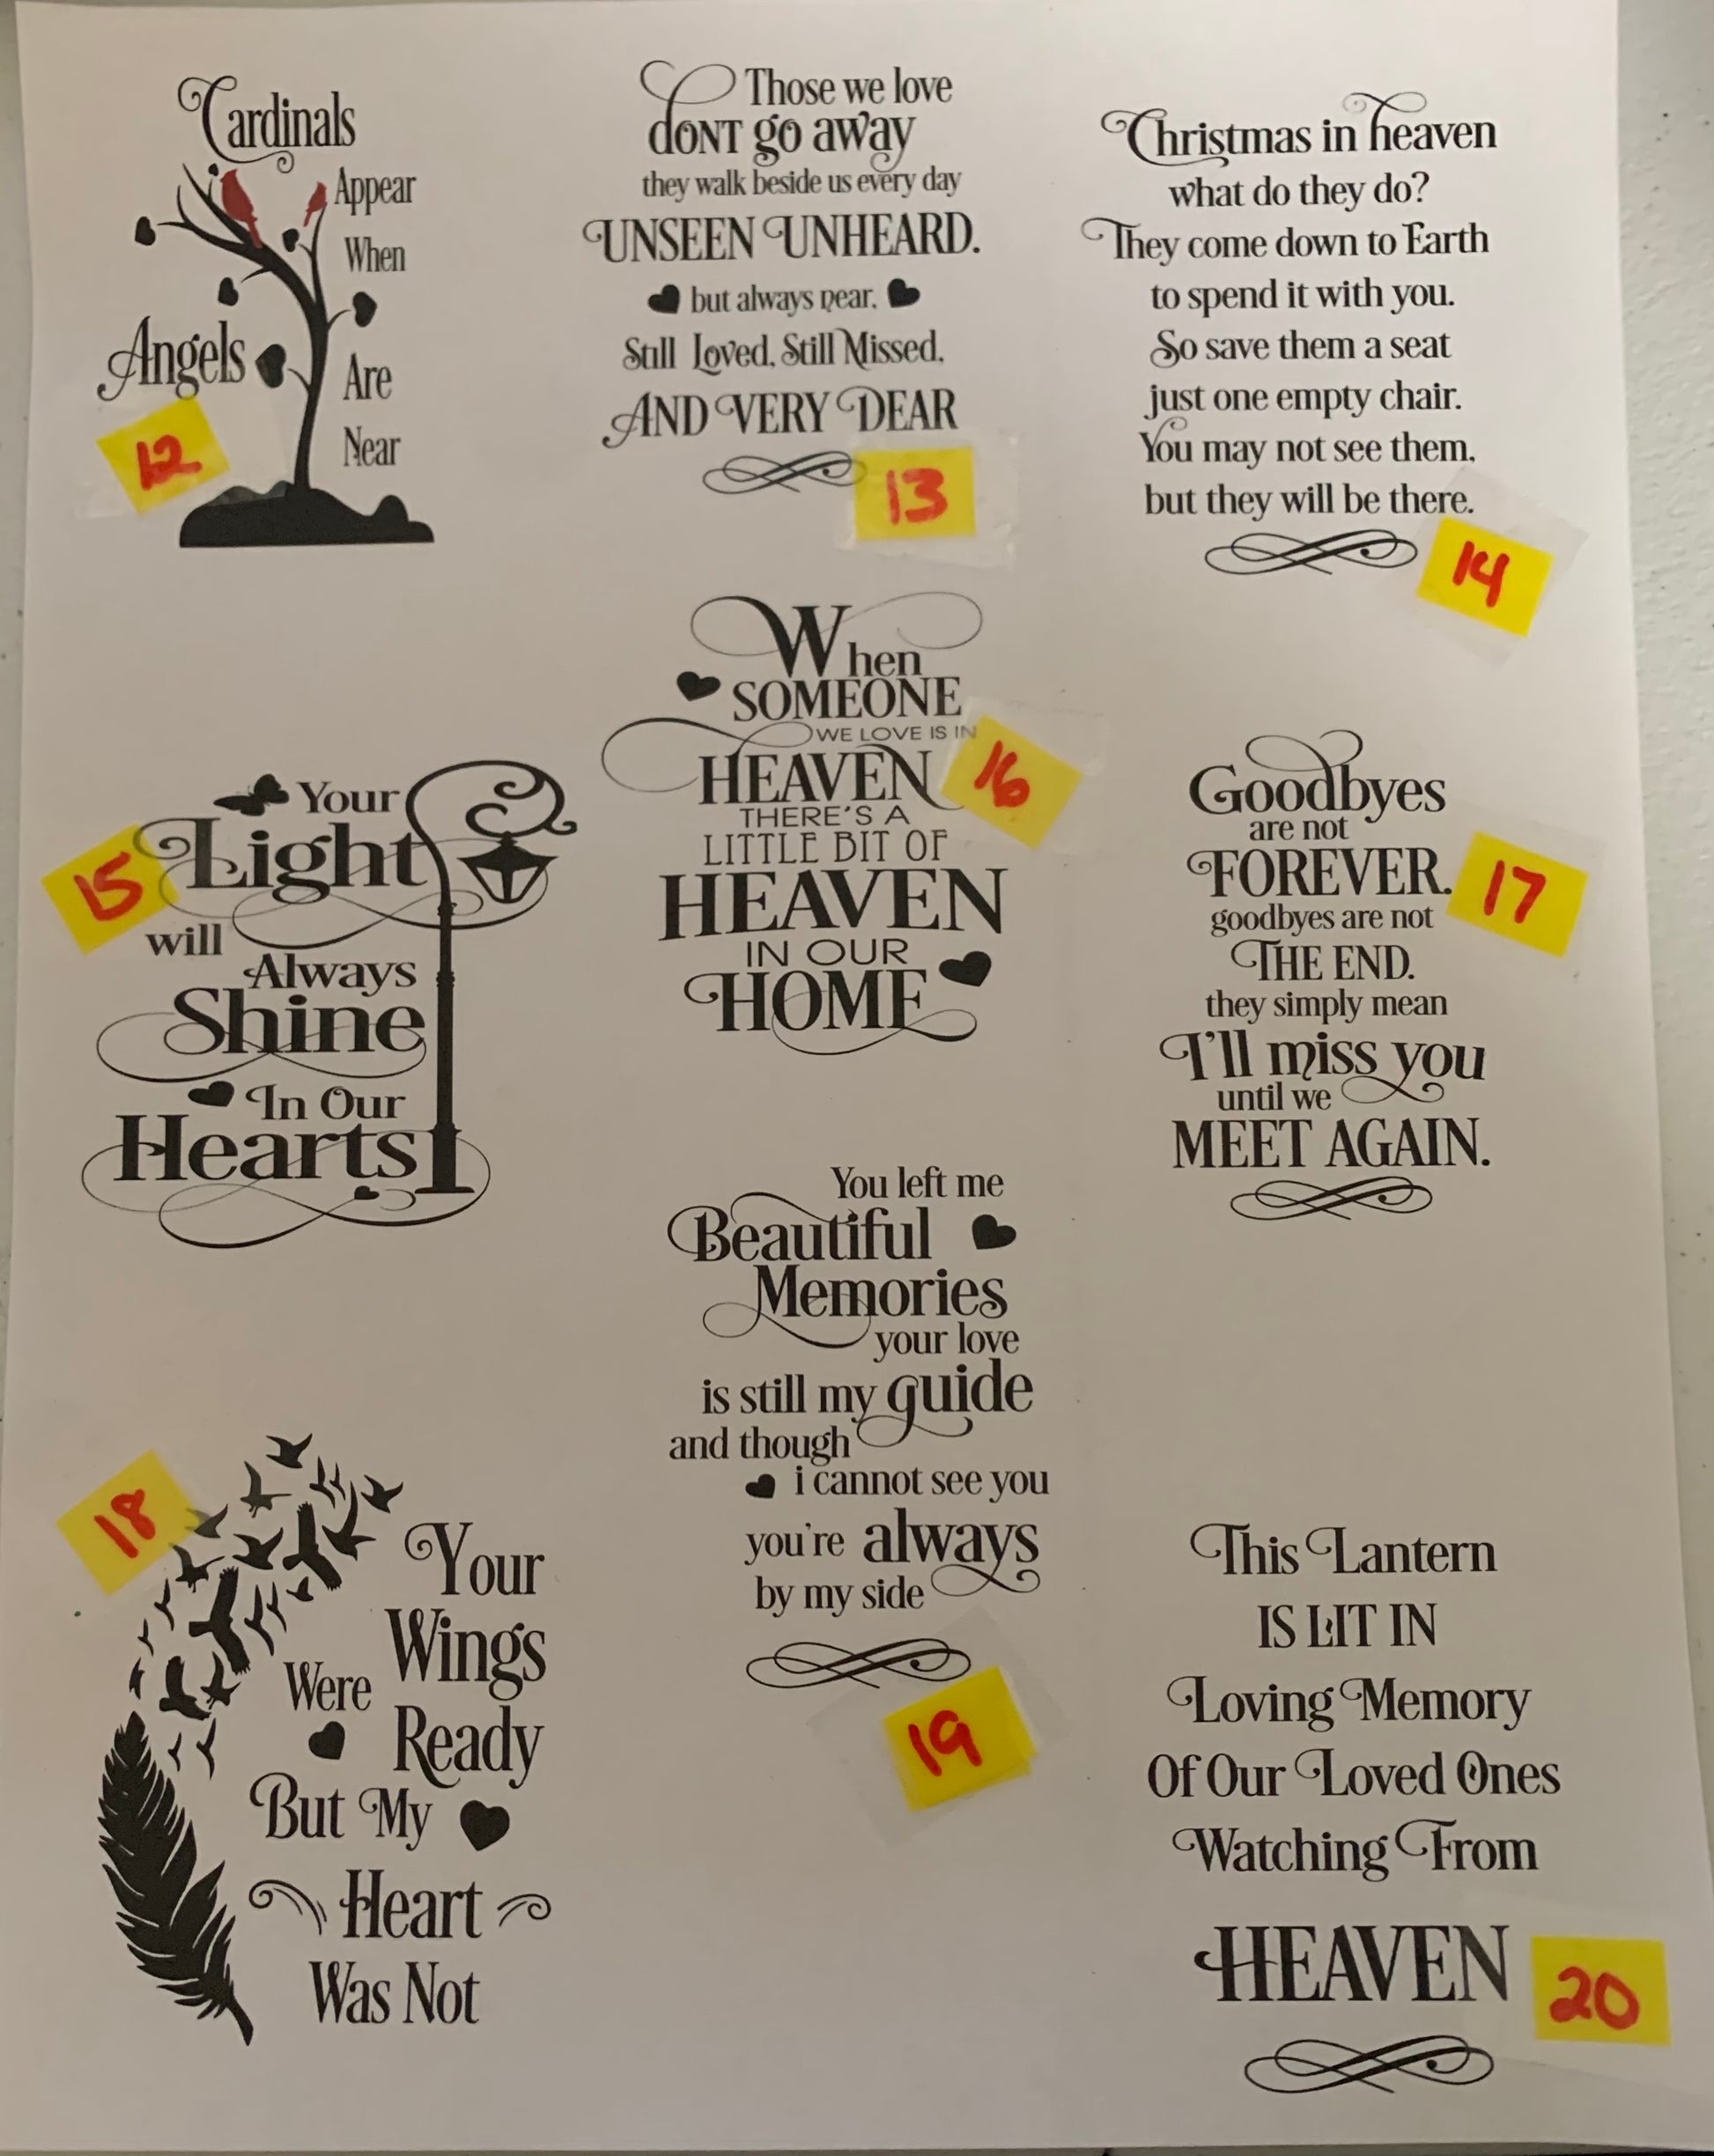 Cardinals
Appear
When
Angels
Are
Near
12
Those we love
dONT go away
they walk beside us every day
UNSEEN UNHEARD.
but always near.
Still Loved, Still Missed,
AND VERY DEAR
13
Christmas in heaven
what do they do?
They come down to Earth
to spend it with you.
So save them a seat
just one empty chair.
You may not see them,
but they will be there.
14
Your
Light
15
will
Always
Shine
In Our
Hearts
When
SOMEONE
WE LOVE IS IN
HEAVEN
16
THERE'S A
LITTLE BIT OF
HEAVEN
IN OUR
HOME
Goodbyes
are not
FOREVER.
17
goodbyes are not
THE END.
they simply mean
I'll miss you
until we
MEET AGAIN.
18
Your
Wings
Were
Ready
But My
Heart
Was Not
You left me
Beautiful
Memories
your love
is still my guide
and though
i cannot see you
you're always
by my side
19
This Lantern
IS LIT IN
Loving Memory
Of Our Loved Ones
Watching From
HEAVEN
20